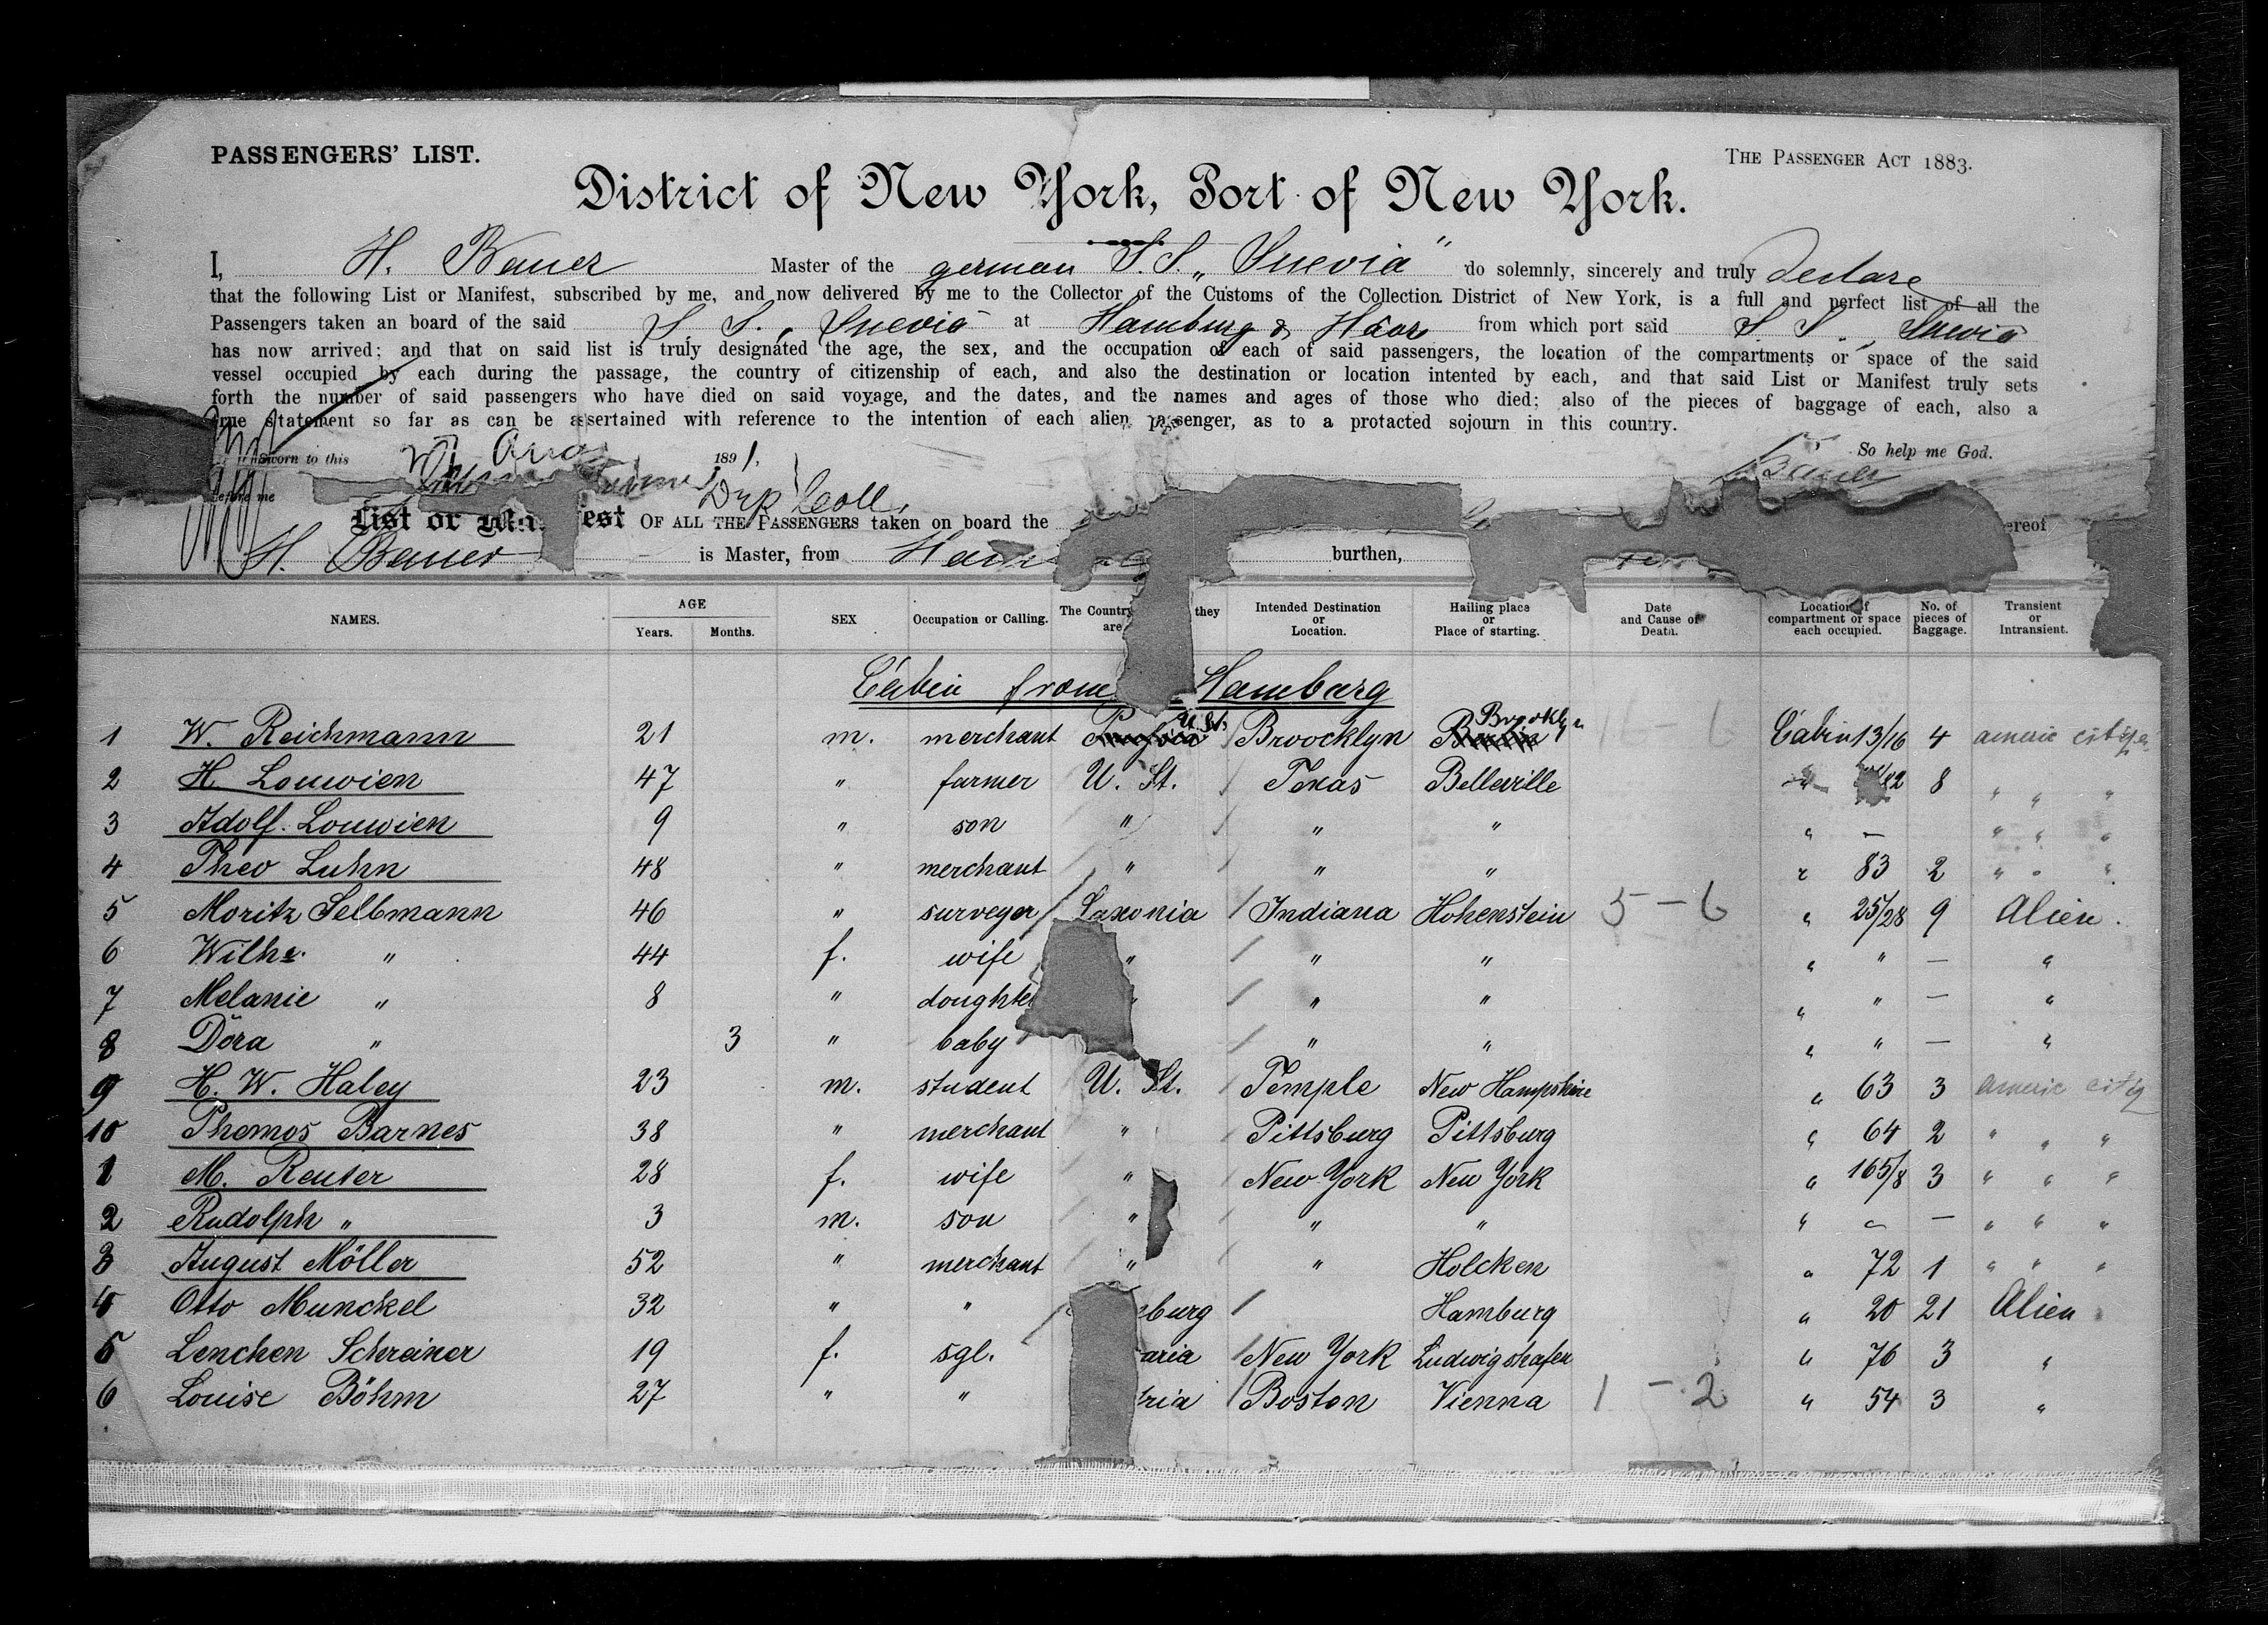 PASSENGERS' LIST.
THE PASSENGER ACT 1883.
District of New York, Port of New York.
I, H. Bauer Master of the german S.S. „Suevia" do solemnly, sincerely and truly declare
that the following List or Manifest, subscribed by me, and now delivered by me to the Collector of the Customs of the Collection District of New York, is a full and perfect list of all the
Passengers taken an board of the said S. S. „Suevia at Hamburg & Havre from which port said S. S. „Suevia
has now arrived; and that on said list is truly designated the age, the sex, and the occupation of each of said passengers, the location of the compartments or space of the said
vessel occupied by each during the passage, the country of citizenship of each, and also the destination or location intented by each, and that said List or Manifest truly sets
forth the number of said passengers who have died on said voyage, and the dates, and the names and ages of those who died; also of the pieces of baggage of each, also a
true statement so far as can be assertained with reference to the intention of each alien passenger, as to a protacted sojourn in this country.
So help me God.
Sworn to this Aug 1891,
Bauer
before me Dep Coll.
List or Ma est OF ALL THE PASSENGERS taken on board the ereof
H. Bauer is Master, from Ham burthen,
NAMES. AGE Years. Months. SEX Occupation or Calling. The Country they are Intended Destination or Location. Hailing place or Place of starting. Date and Cause of Death. Location of compartment or space each occupied. No. of pieces of Baggage. Transient or Intransient.
Cabin from Hamburg
1 W. Reichmann 21 m. merchant U. St. Broocklyn Brooklyn Cabin 13/16 4 americ citize
2 H. Louwien 47 " farmer U. St. Texas Belleville " 82 8 " " "
3 Adolf. Louwien 9 " son " " " " — " " "
4 Theo Luhn 48 " merchant " " " " 83 2 " " "
5 Moritz Selbmann 46 " surveyer Saxonia Indiana Hohenstein 5 - 6 " 25/28 9 Alien.
6 Wilhe. " 44 f. wife " " " " " — "
7 Melanie " 8 " doughte " " " " — "
8 Dora " 3 " baby " " " " — "
9 H. W. Haley 23 m. student U. St. Temple New Hampshire " 63 3 americ citiz
10 Thomos Barnes 38 " merchant " Pittsburg Pittsburg " 64 2 " " "
1 M. Reuter 28 f. wife " New York New York " 165/8 3 " " "
2 Rudolph " 3 m. son " " " " " — " " "
3 August Möller 52 " merchant " " Holcken " 72 1 " " "
4 Otto Munckel 32 " " burg Hamburg " 20 21 Alien
5 Lenchen Schreiner 19 f. sgl. aria New York Ludwigshafen " 76 3 "
6 Louise Böhm 27 " " ria Boston Vienna 1 - 2 " 54 3 "